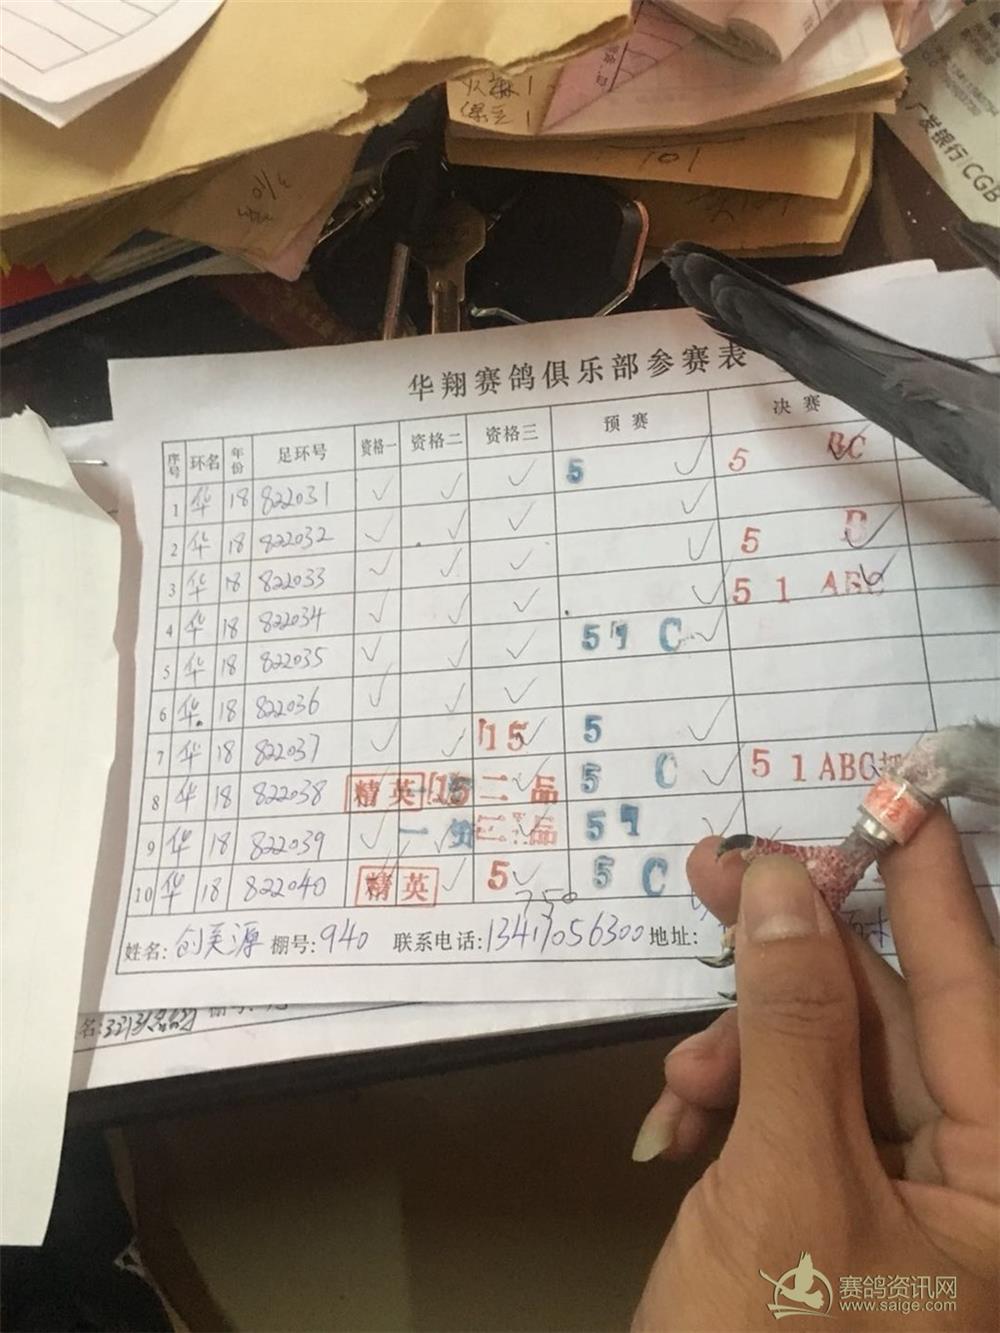 广发银行 CGB
101
华翔赛鸽俱乐部参赛表
序号 环名 年份 足环号 资格一 资格二 资格三 预赛 决赛
1 华 18 822031 ✓ ✓ ✓ 5 ✓ 5 BC
2 华 18 822032 ✓ ✓ ✓ ✓
3 华 18 822033 ✓ ✓ ✓ ✓ 5 B
4 华 18 822034 ✓ ✓ ✓ ✓ 5 1 ABC
5 华 18 822035 ✓ ✓ ✓ 5 1 C ✓
6 华 18 822036 ✓ ✓ ✓
7 华 18 822037 ✓ ✓ 15 ✓ 5
8 华 18 822038 精英 15 二品 5 C ✓ 5 1 ABC
9 华 18 822039 ✓ 一贡 三品 5 1 ✓
10 华 18 822040 精英 ✓ 5 ✓ 5 C
750
姓名: 创美源 棚号: 940 联系电话: 13417056300 地址:
赛鸽资讯网
www.saige.com